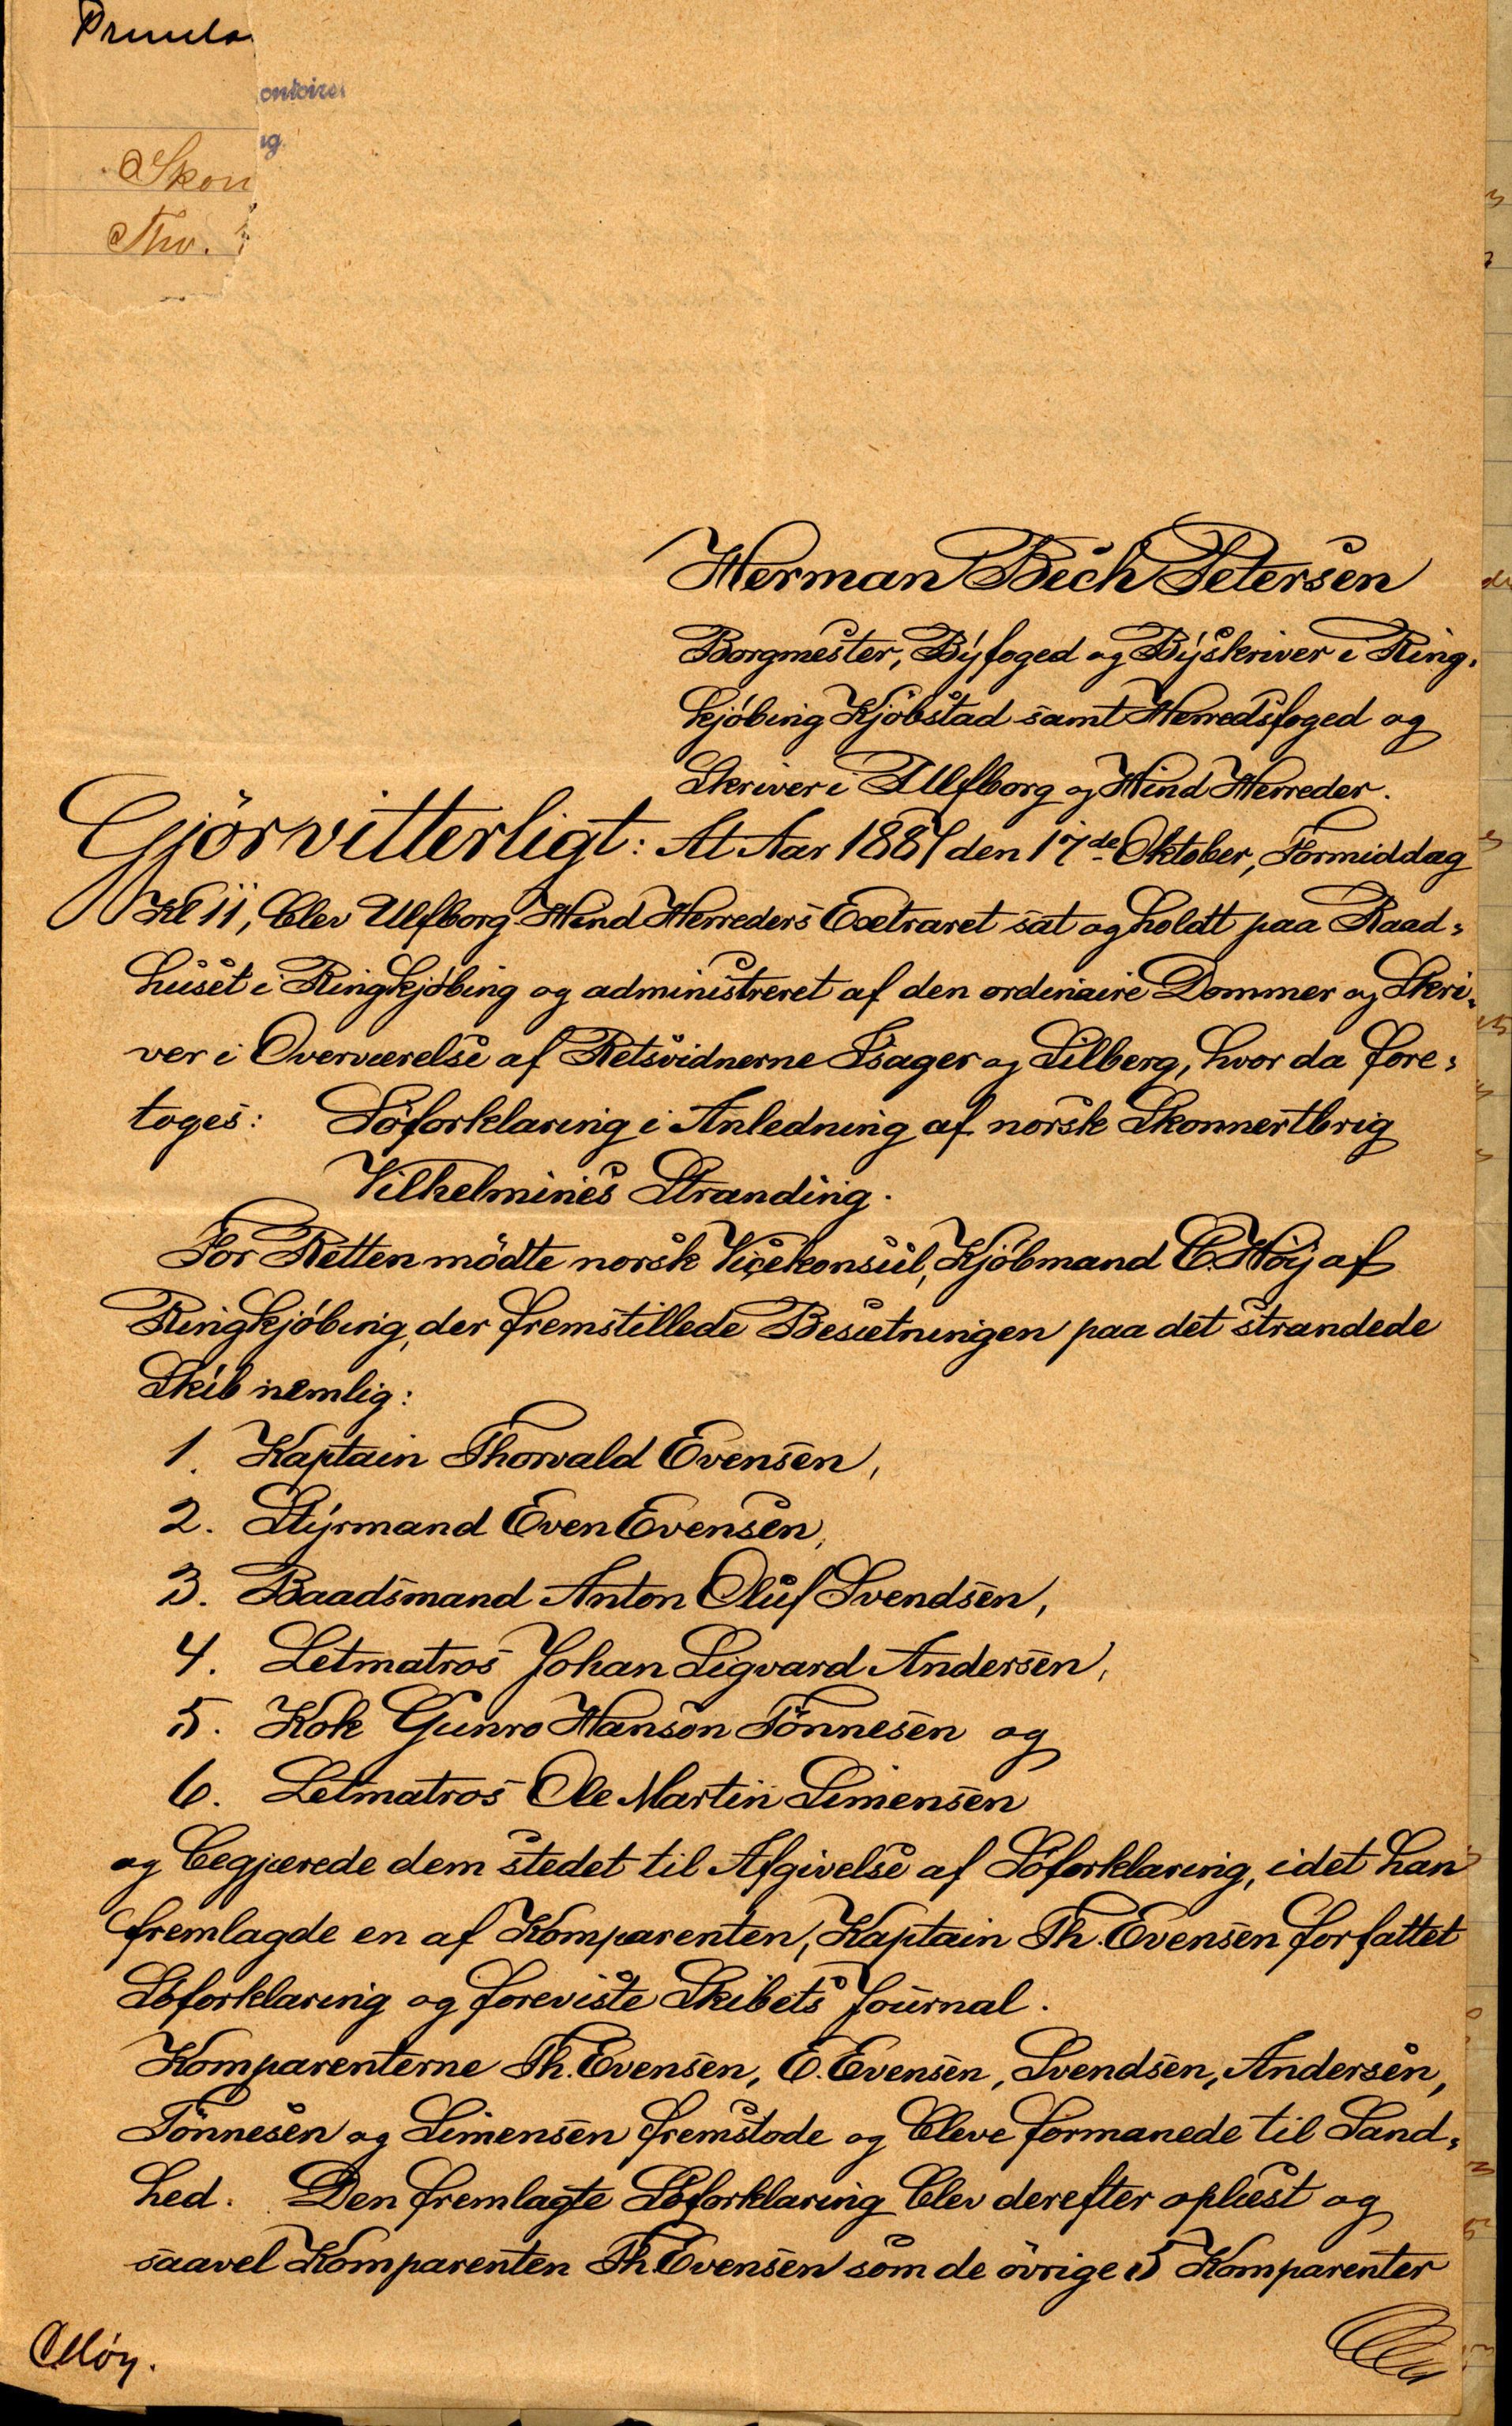 ontoires
ig
Skon
Tho.
Herman Bech Petersen
Borgmester, Byfoged og Byskriver i Ring-
kjöbing Kjöbstad samt Herredsfoged og
Skriver i Ulfborg og Hind Herreder.
Gjör vitterligt: At Aar 1881 den 17de Oktober, Formiddag
Kl 11, blev Ulfborg-Hind Herreders Extraret sat og holdt paa Raad-
huset i Ringkjöbing og administreret af den ordinaire Dommer og Skri-
ver i Overværelse af Retsvidnerne Isager og Silberg, hvor da fore-
toges: Söforklaring i Anledning af norsk Skonnertbrig
Vilhelmines Stranding.
For Retten mödte norsk Vicekonsul, Kjöbmand C. Höij af
Ringkjöbing, der fremstillede Besætningen paa det strandede
Skib nemlig:
1. Kaptain Thorvald Evensen,
2. Styrmand Even Evensen,
3. Baadsmand Anton Oluf Svendsen,
4. Letmatros Johan Sigvard Andersen,
5. Kok Gunro Hanson Tönnesen og
6. Letmatros Ole Martin Simensen
og begjærede dem stedet til Afgivelse af Söforklaring, idet han
fremlagde en af Komparenten, Kaptain Th. Evensen forfattet
Söforklaring og foreviste Skibets Journal.
Komparenterne Th. Evensen, E. Evensen, Svendsen, Andersen,
Tönnesen og Simensen fremstode og bleve formanede til Sand-
hed. Den fremlagte Söforklaring blev derefter oplæst og
saavel Komparenten Th Evensen som de övrige 5 Komparenter